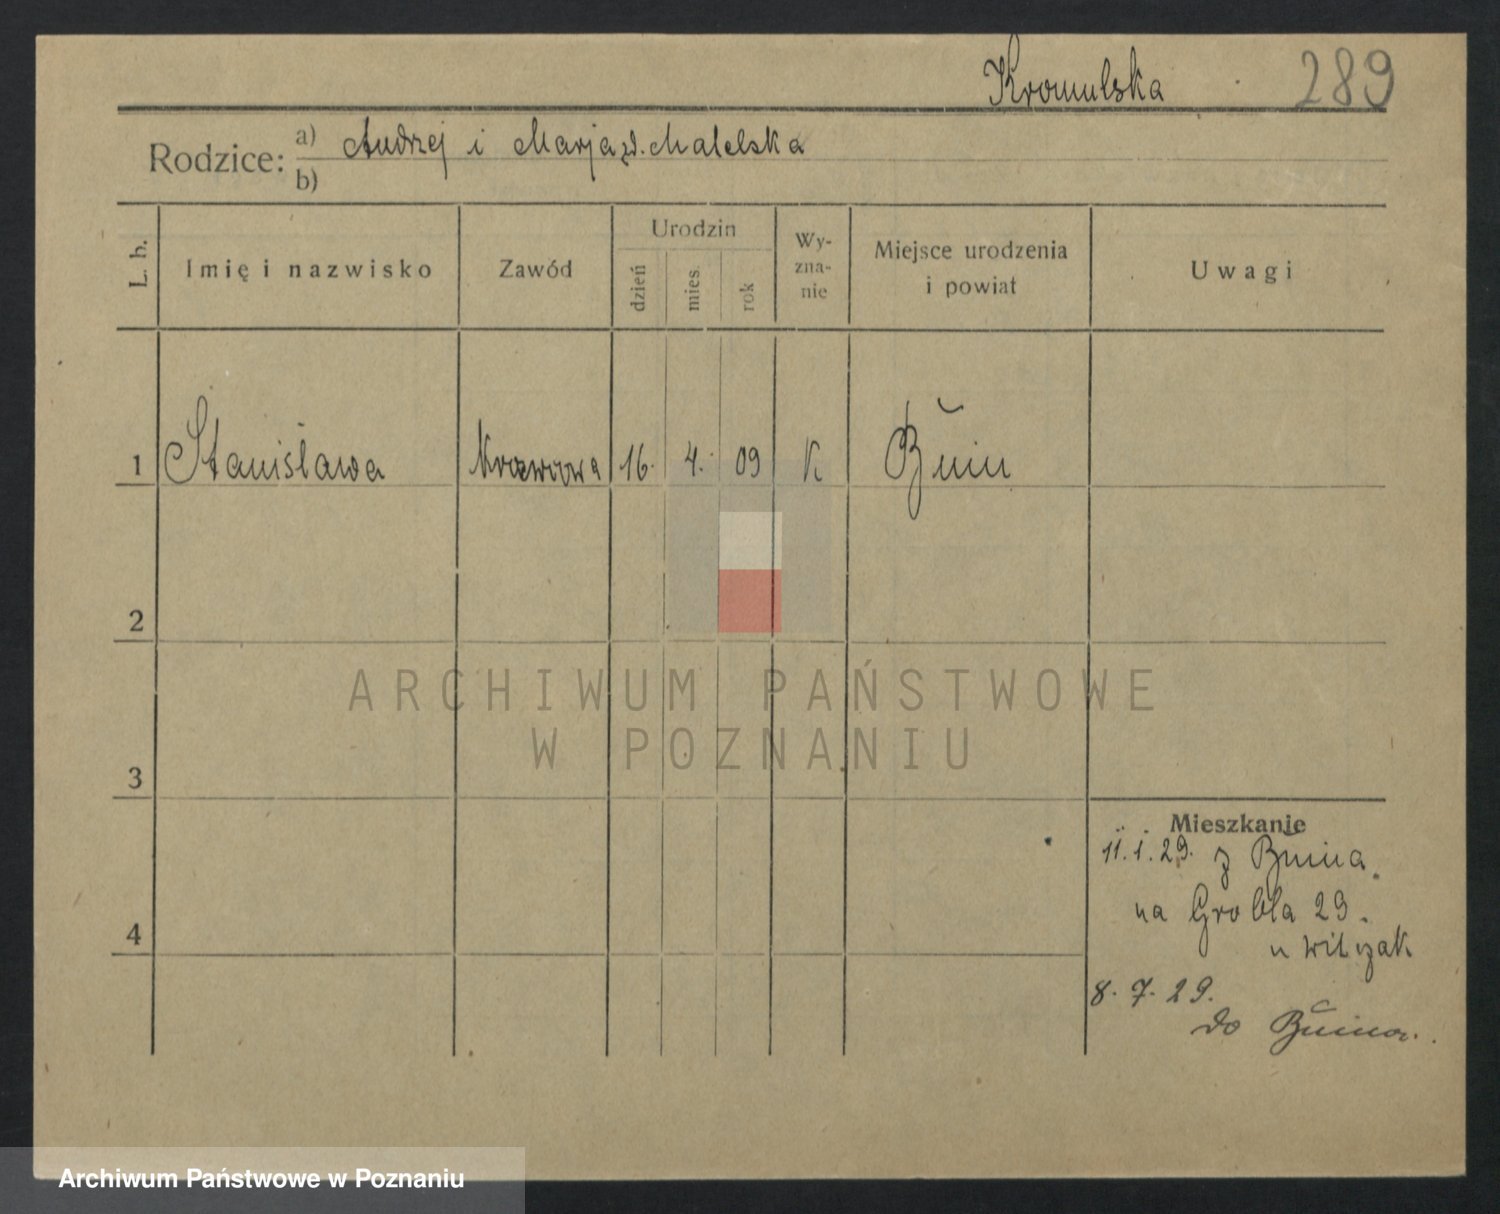 Kromulska 289
Rodzice: a) Andrzej i Marja zd. Matelska
b)
L. b. Imię i nazwisko Zawód Urodzin dzień mies. rok Wyznanie Miejsce urodzenia i powiat Uwagi
1 Stanisława Krawcowa 16. 4. 09 K Bnin
2
3
Mieszkanie
11.1.29. z Bnina
na Grobla 29.
4
u Witczak
8.7.29.
do Bnina.
ARCHIWUM PAŃSTWOWE
W POZNANIU
Archiwum Państwowe w Poznaniu